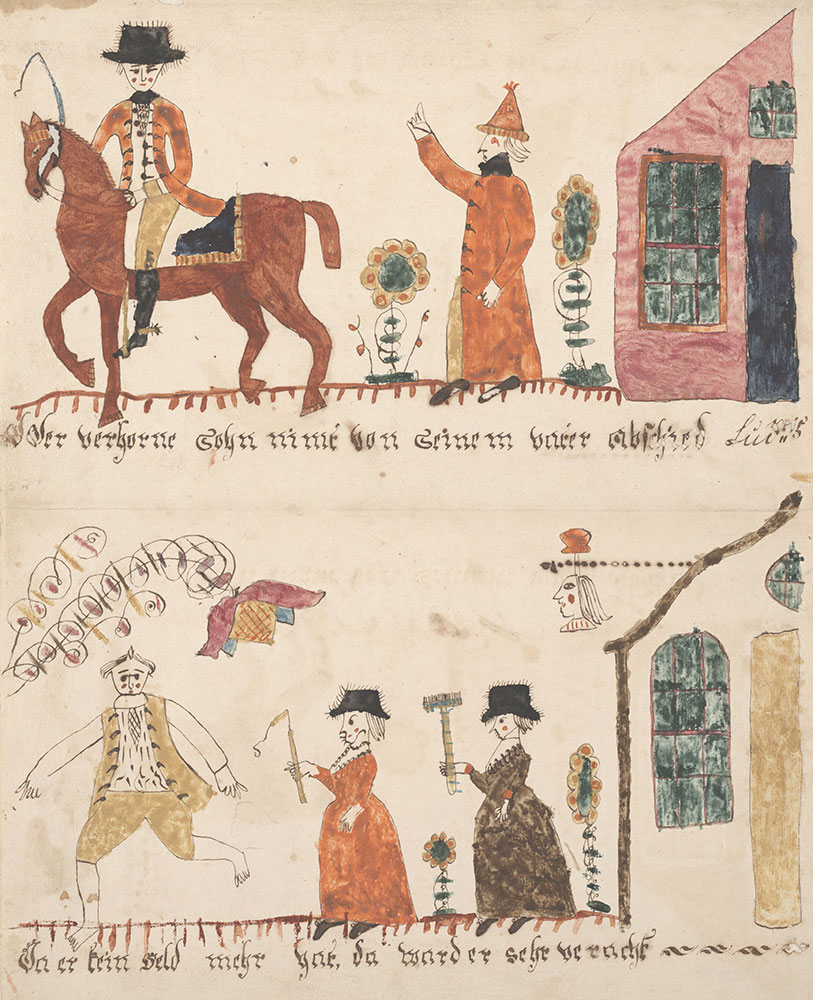 Der verhorne Sohn nimt von Seinem vater abschied Luc
Da er kein Geld mehr hat, da ward er sehr veracht